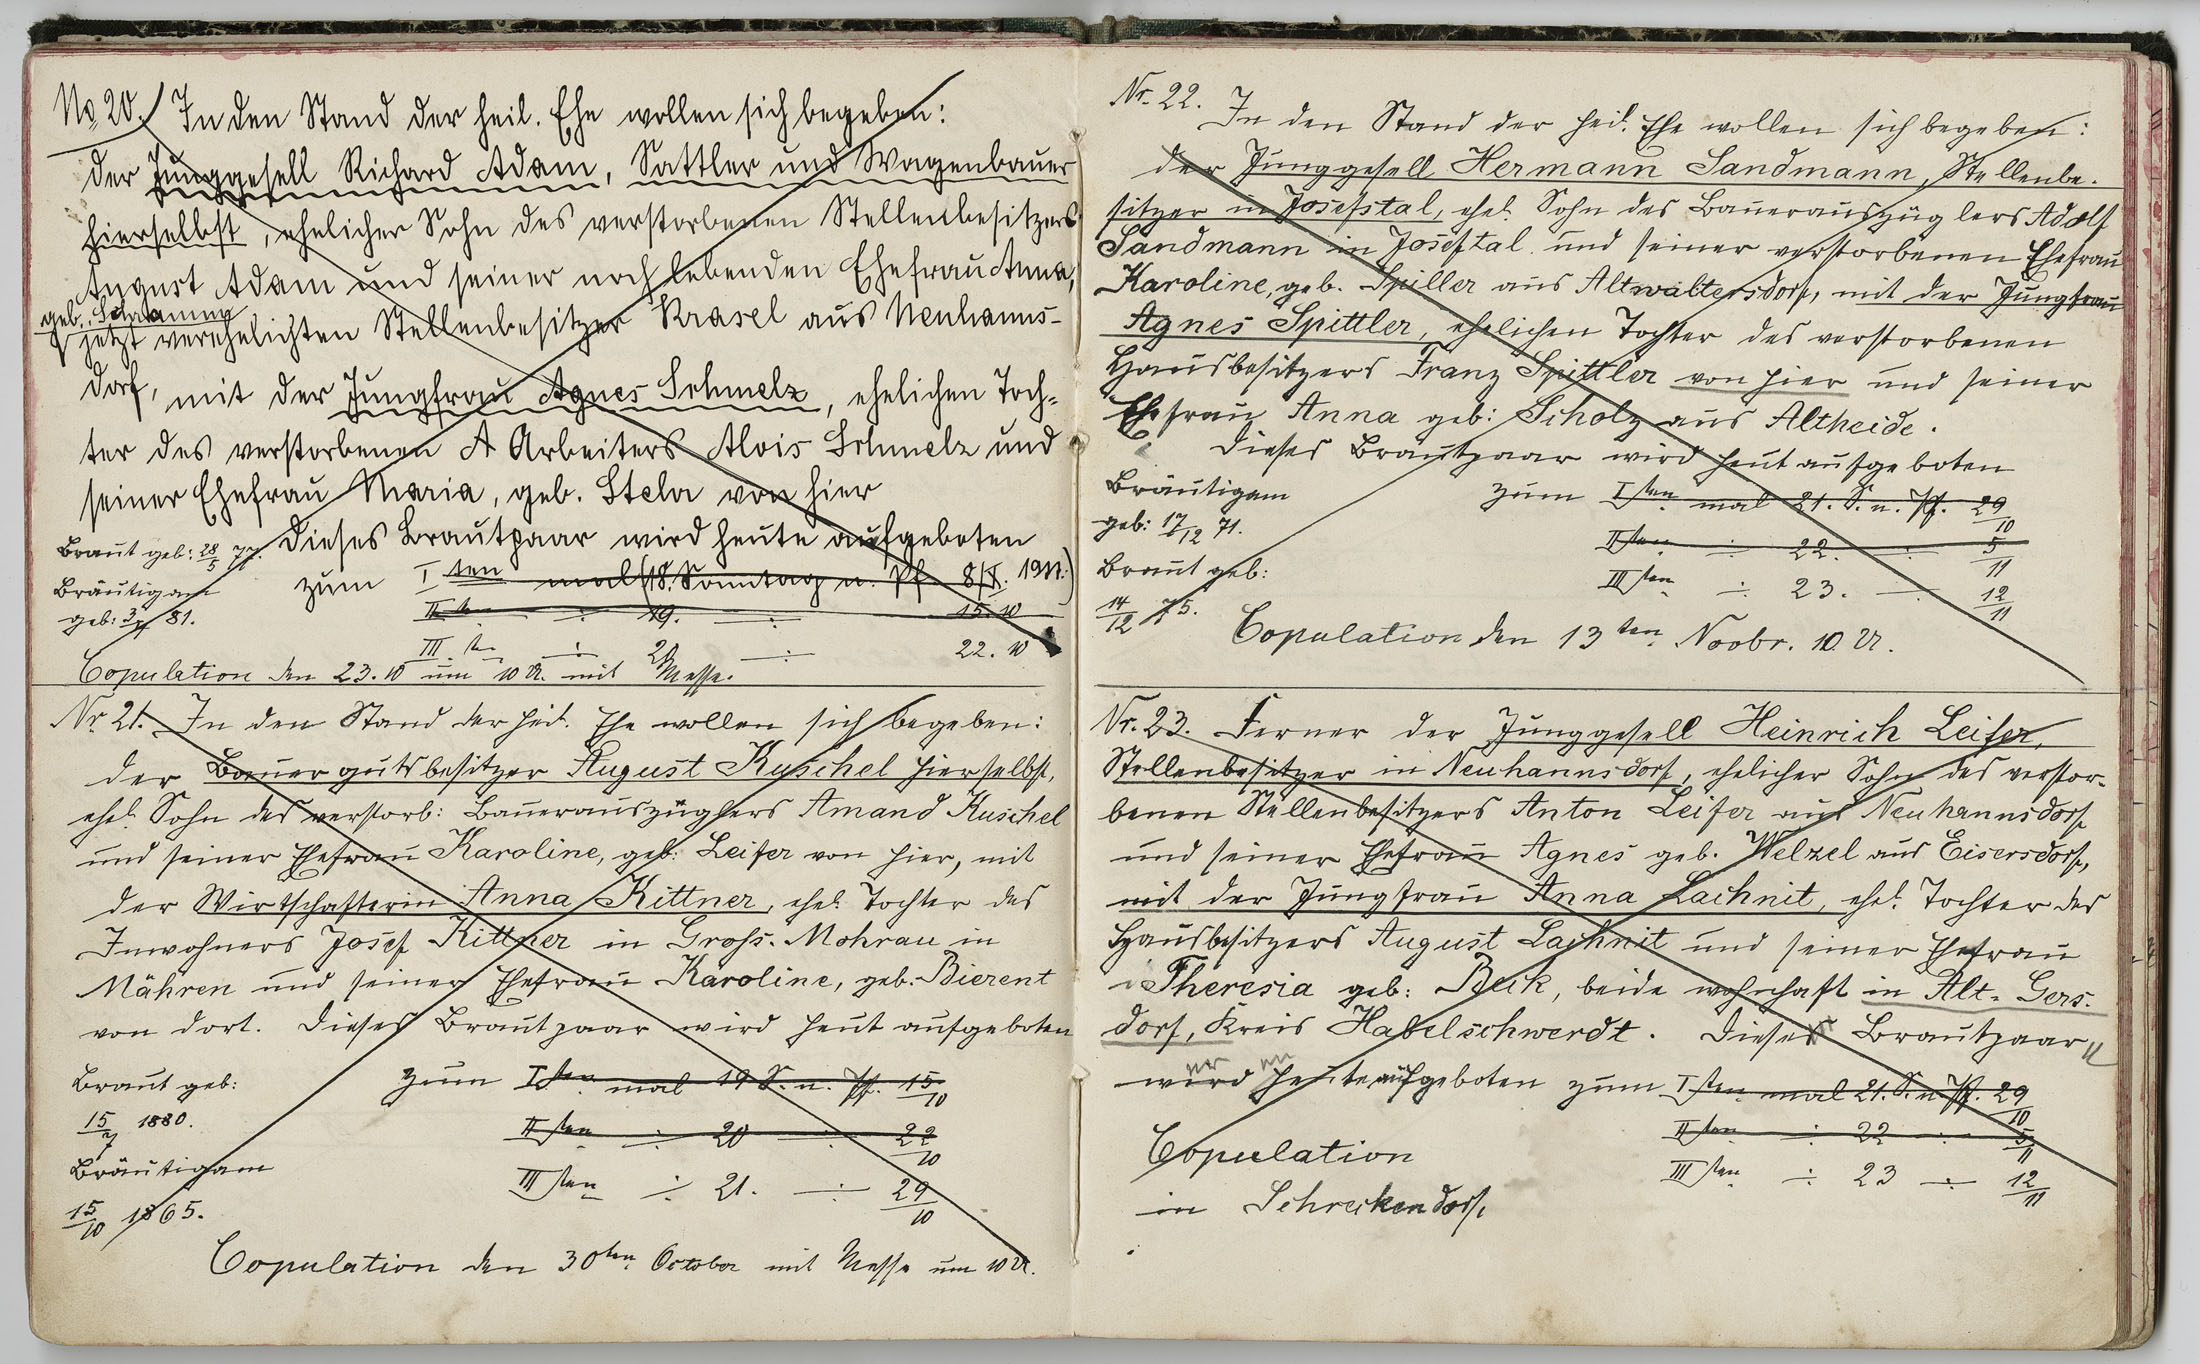 No. 20. In den Stand der heil. Ehe wollen sich begeben:
der Junggesell Richard Adam, Sattler und Wagenbauer
hierselbst, ehelicher Sohn des verstorbenen Stellenbesitzers
August Adam und seiner noch lebenden Ehefrau Anna,
geb. Schramm
jetzt verehelichten Stellenbesitzer Krasel aus Neuhanns-
dorf, mit der Jungfrau Agnes Schmelz, ehelichen Toch-
ter des verstorbenen A Arbeiters Alois Schmelz und
seiner Ehefrau Maria, geb. von hier
Dieses Brautpaar wird heute aufgeboten
Braut geb: 28/5 77.
zum I ten mal (18. Sonntag n. Pf 8/X. 1911.)
Bräutigam
geb: 81.
II ten ÷ 19. ÷ 15. 10
III ten ÷ 20 ÷ 22. 10
Copulation den 23. 10 um 10 U. mit Messe.
Nr. 21. In den Stand der heil. Ehe wollen sich begeben:
der Bauergutsbesitzer August Kuschel hierselbst,
ehel. Sohn des verstorb: Bauerauszüglers Amand Kuschel
und seiner Ehefrau Karoline, geb. Leifer von hier, mit
der Wirtschafterin Anna Kittner, ehel. Tochter des
Inwohners Josef Kittner in Gross-Mohrau in
Mähren und seiner Ehefrau Karoline, geb. Bierent
von dort. Dieses Brautpaar wird heut aufgeboten
Braut geb:
15/7 1880.
zum I ten mal 19 S. n. Pf. 15/10
II ten ÷ 20 ÷ 22/10
Bräutigam
15/10 1865.
III ten ÷ 21. ÷ 29/10
Copulation den 30ten October mit Messe um 10 U.
Nr. 22. In den Stand der heil. Ehe wollen sich begeben:
der Junggesell Hermann Sandmann, Stellenbe-
sitzer in Josefstal, ehel. Sohn des Bauerauszüglers Adolf
Sandmann in Joseftal und seiner verstorbenen Ehefrau
Karoline, geb. Spiller aus Altwaltersdorf, mit der Jungfrau
Agnes Spittler, ehelichen Tochter des verstorbenen
Hausbesitzers Franz Spittler von hier und seiner
Ehefrau Anna geb: Scholz aus Altheide.
Dieses Brautpaar wird heut aufgeboten
Bräutigam
geb: 17/12 71.
zum I ten mal 21. S. n. Pf. 29/10
II ten ÷ 22. ÷ 5/11
Braut geb:
14/12 75.
III ten ÷ 23. ÷ 12/11
Copulation den 13ten Novbr. 10 U.
Nr. 23. Ferner der Junggesell Heinrich Leifer,
Stellenbesitzer in Neuhannsdorf, ehelicher Sohn des verstor-
benen Stellenbesitzers Anton Leifer aus Neuhannsdorf
und seiner Ehefrau Agnes geb. Welzel aus Eisersdorf,
mit der Jungfrau Anna Lachnit, ehel. Tochter des
Hausbesitzers August Lachnit und seiner Ehefrau
Theresia geb: Buk, beide wohnhaft in Alt-Gers-
dorf, Kreis Habelschwerdt. Dieses Brautpaar
wird heute aufgeboten zum I ten mal 21. S. n. Pf. 29/10
II ten ÷ 22 ÷ 5/11
III ten ÷ 23 ÷ 12/11
Copulation
in Schreckendorf